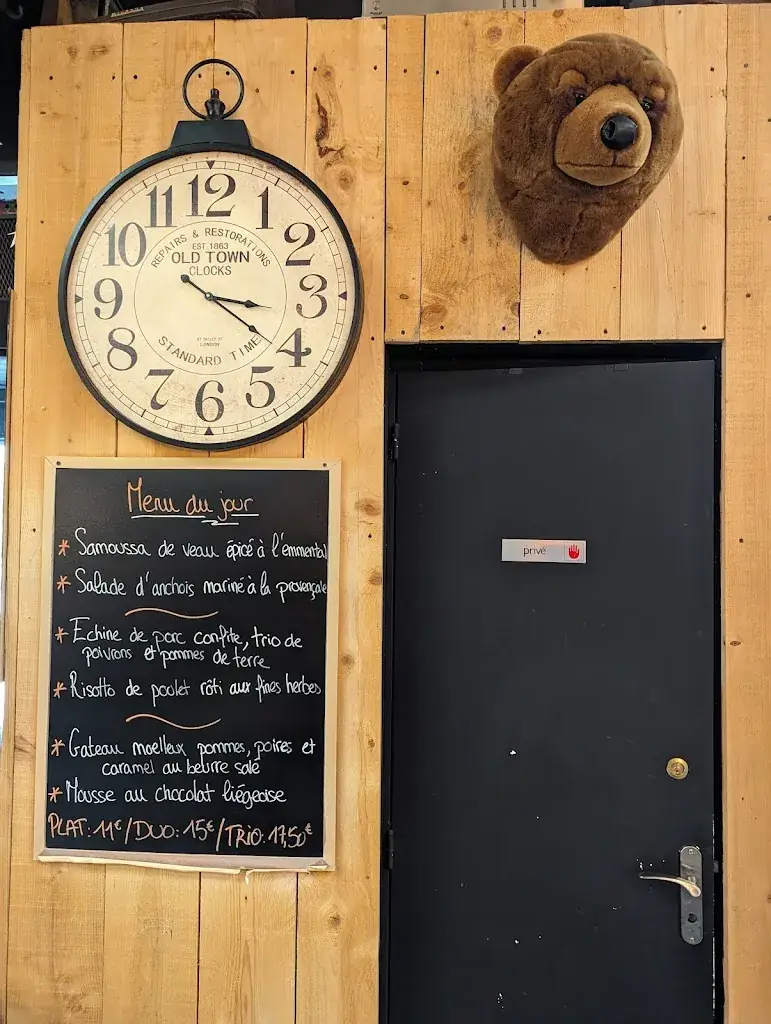 12
1
2
3
4
5
6
7
8
9
10
11
REPAIRS & RESTORATIONS
EST.1863
OLD TOWN
CLOCKS
LONDON
STANDARD TIME
Menu du jour
* Samoussa de veau épicé à l'emmental
* Salade d'anchois mariné à la provençale
* Echine de porc confite, trio de
poivrons et pommes de terre
* Risotto de poulet rôti aux fines herbes
* Gateau moelleux pommes, poires et
caramel au beurre salé
* Mousse au chocolat liégeoise
PLAT: 11€/DUO: 15€/TRIO: 17,50€
privé